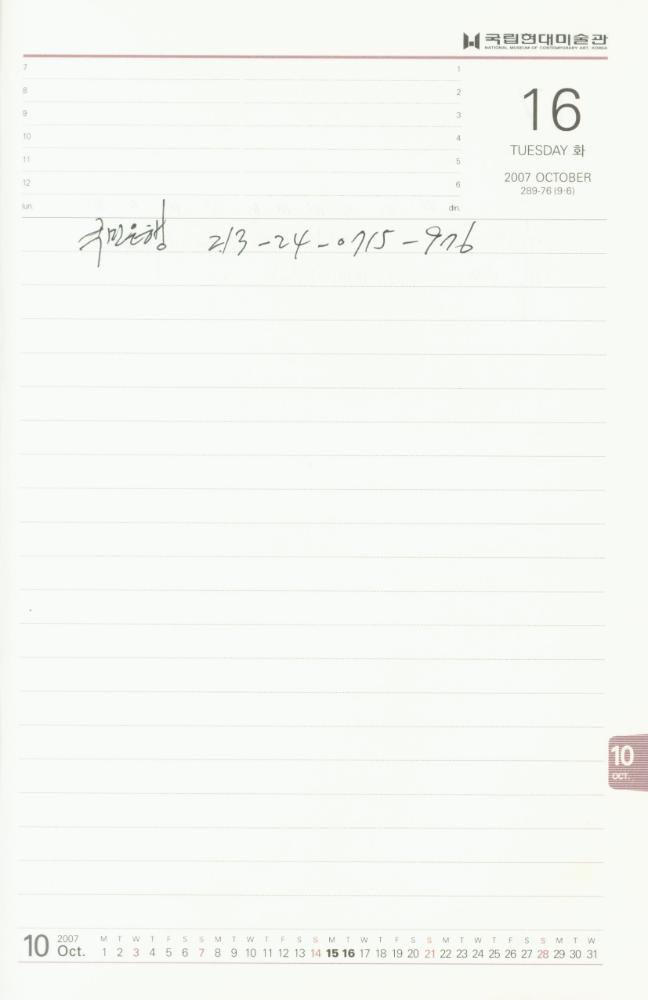 국립현대미술관
NATIONAL MUSEUM OF CONTEMPORARY ART, KOREA
7
8
9
10
11
12
lun.
1
2
3
4
5
6
din.
16
TUESDAY 화
2007 OCTOBER
289-76 (9·6)
국민은행 213-24-0715-976
10
OCT.
10 2007 Oct.
M T W T F S S M T W T F S S M T W T F S S M T W T F S S M T W
1 2 3 4 5 6 7 8 9 10 11 12 13 14 15 16 17 18 19 20 21 22 23 24 25 26 27 28 29 30 31